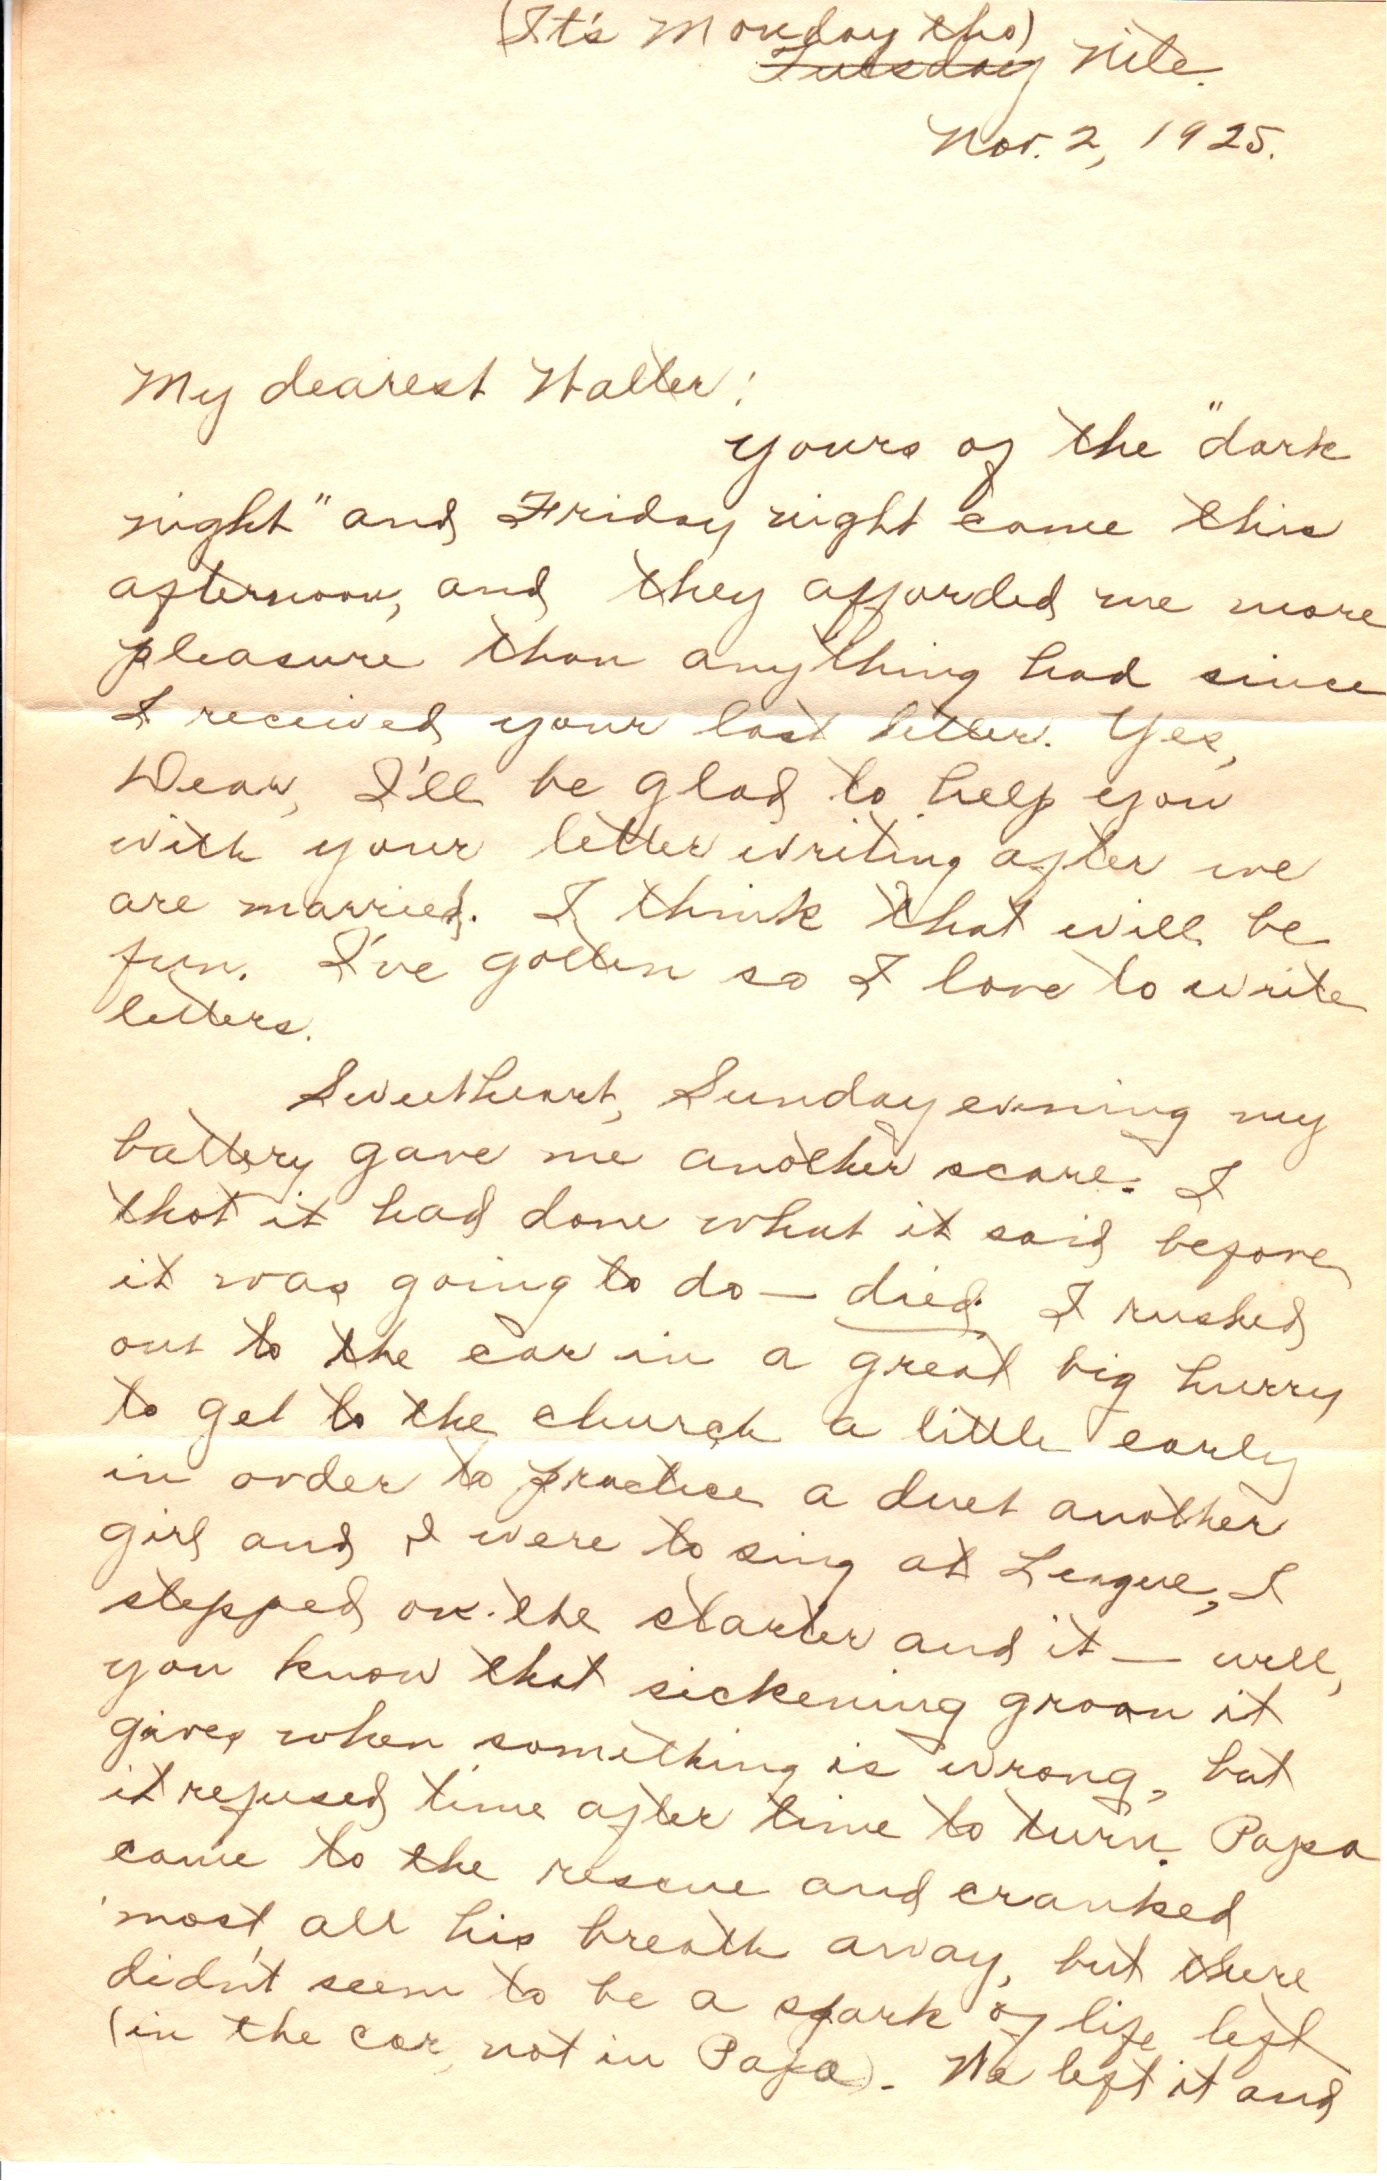 (It's Monday tho)
Tuesday Nite.
Nov. 2, 1925.
My dearest Walter:
Yours of the "dark
night" and Friday night came this
afternoon, and they afforded me more
pleasure than anything had since
I received your last letter. Yes,
Dear, I'll be glad to help you
with your letter writing after we
are married. I think that will be
fun. I've gotten so I love to write
letters.
Sweetheart, Sunday evening my
battery gave me another scare. I
thot it had done what it said before
it was going to do — died. I rushed
out to the car in a great big hurry
to get to the church a little early
in order to practice a duet another
girl and I were to sing at League, I
stepped on the starter and it — well,
you know that sickening groan it
gives when something is wrong, but
it refused time after time to turn. Papa
came to the rescue and cranked
'most all his breath away, but there
didn't seem to be a spark of life left
(in the car, not in Papa). We left it and